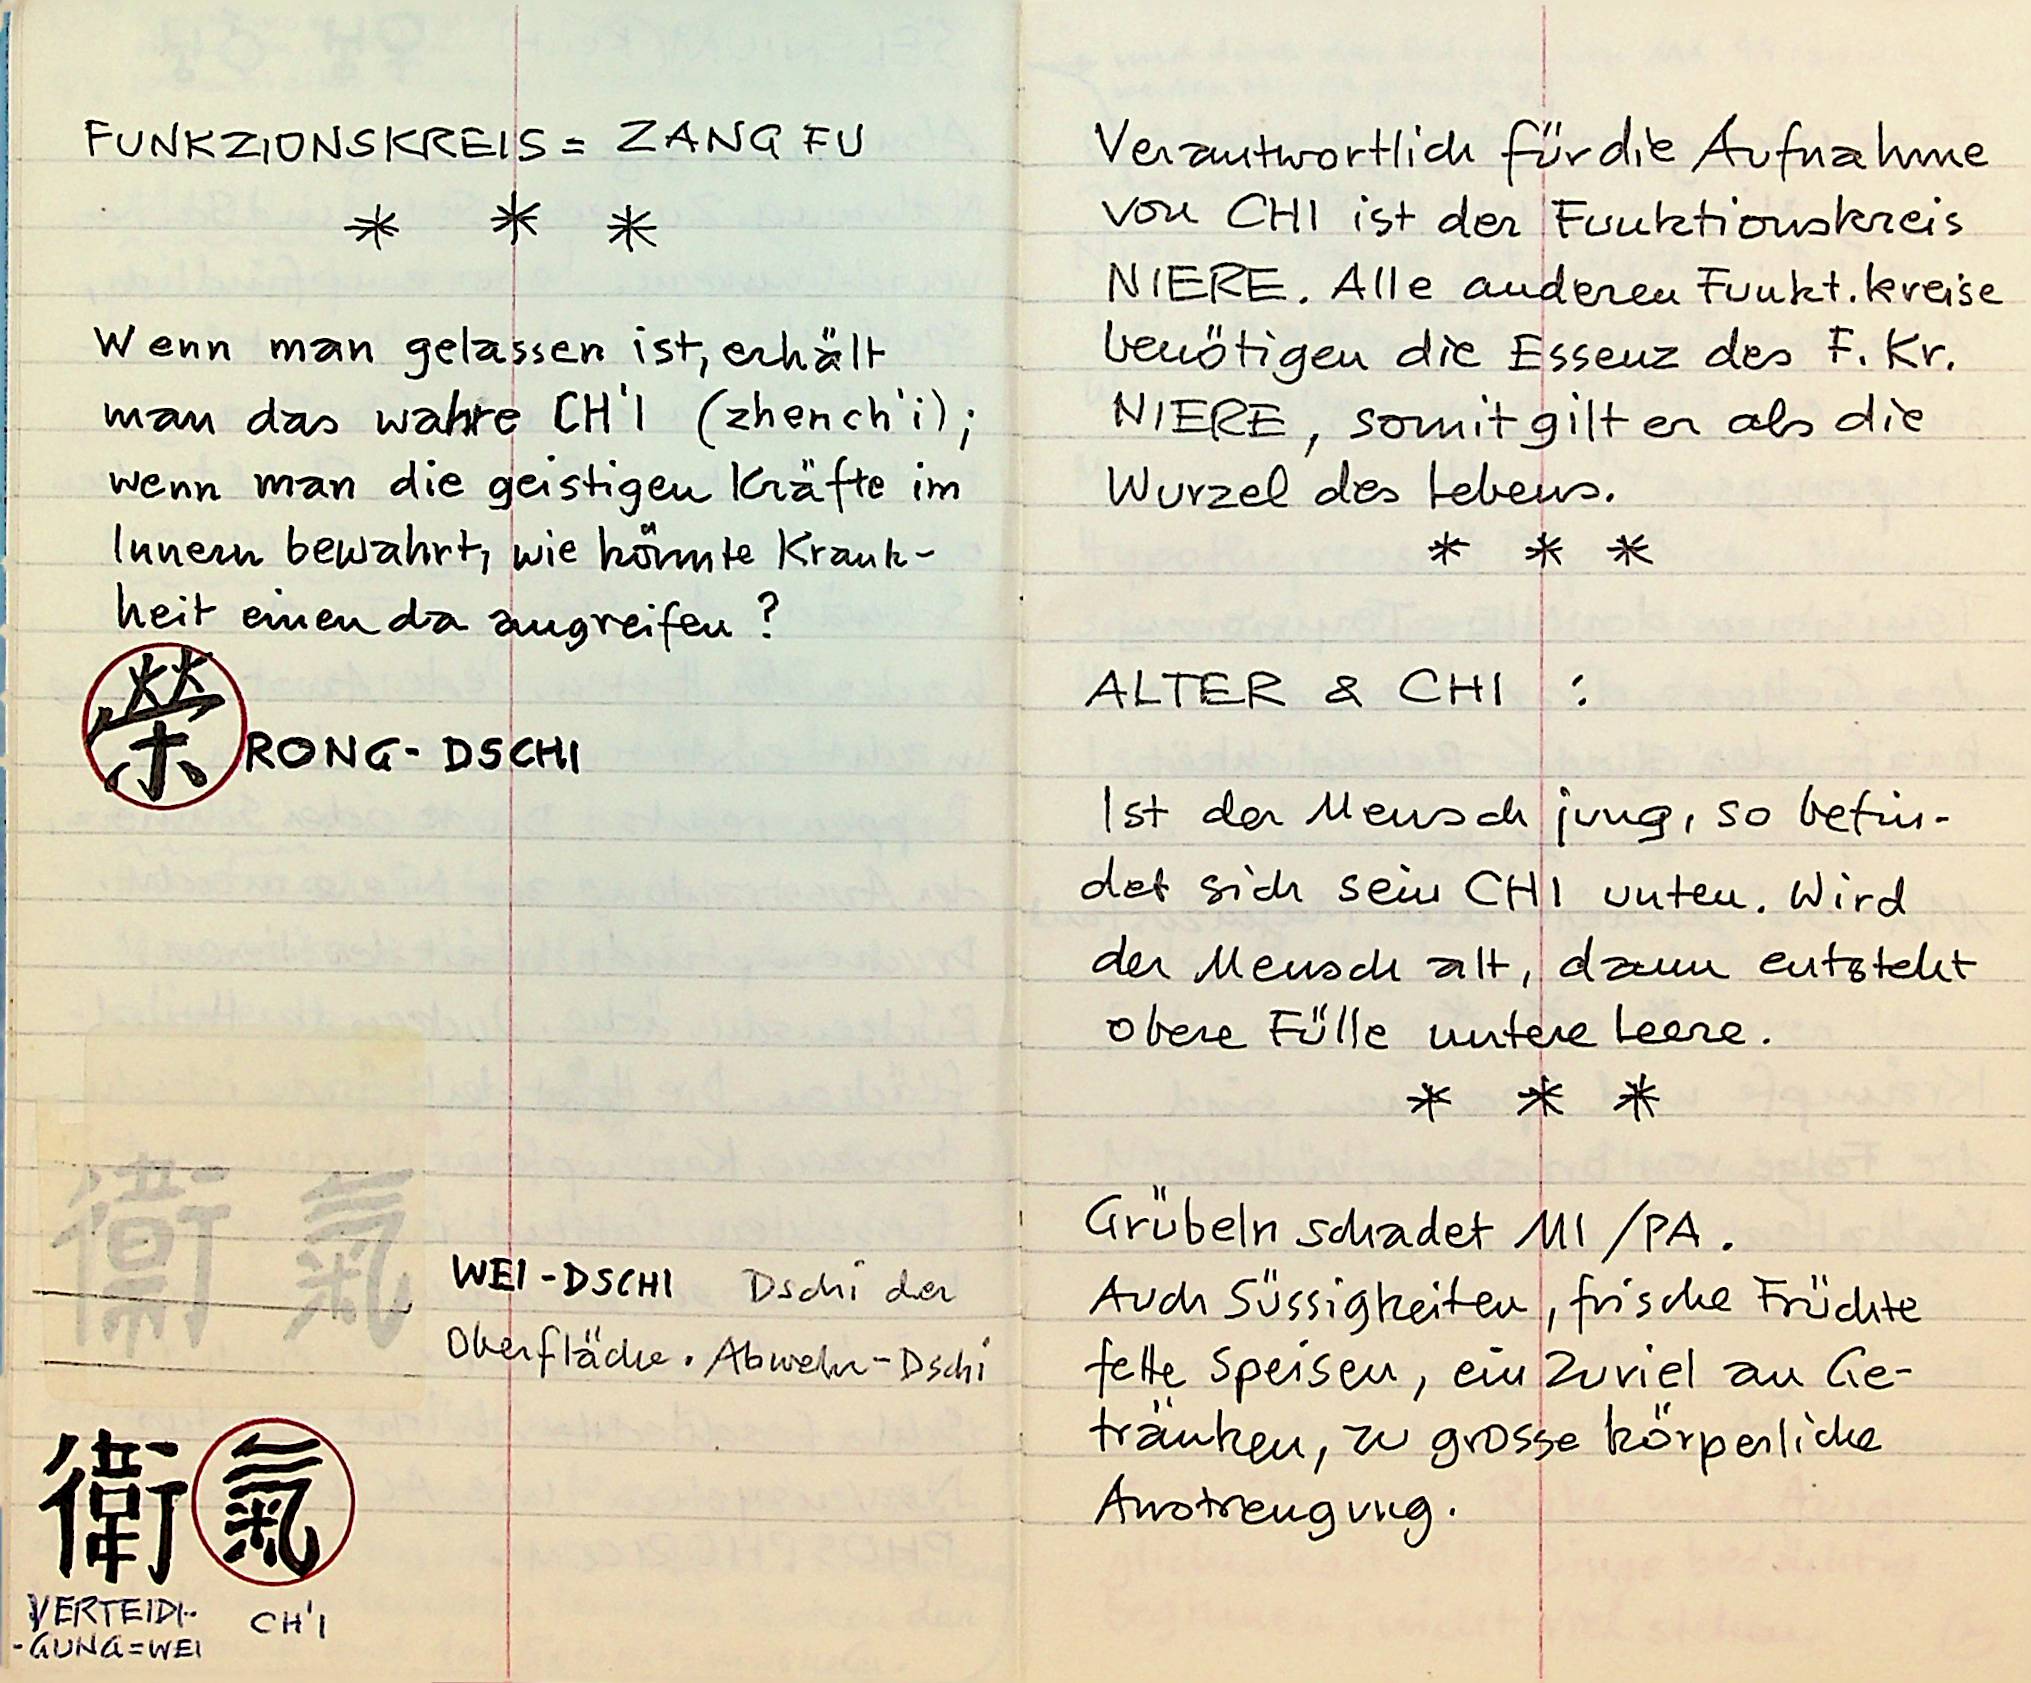 FUNKZIONSKREIS = ZANG FU
* * *
Wenn man gelassen ist, erhält
man das wahre CH'I (zhench'i);
wenn man die geistigen Kräfte im
Innern bewahrt, wie könnte Krank-
heit einen da angreifen?
榮 RONG-DSCHI
衛 氣
WEI-DSCHI Dschi der
Oberfläche. Abwehr-Dschi
衛 氣
VERTEIDI-
-GUNG=WEI
CH'I
Verantwortlich für die Aufnahme
von CHI ist der Funktionskreis
NIERE. Alle anderen Funkt.kreise
benötigen die Essenz des F. Kr.
NIERE, somit gilt er als die
Wurzel des Lebens.
* * *
ALTER & CHI :
Ist der Mensch jung, so befin-
det sich sein CHI unten. Wird
der Mensch alt, dann entsteht
obere Fülle untere Leere.
* * *
Grübeln schadet MI/PA.
Auch Süssigkeiten, frische Früchte
fette Speisen, ein Zuviel an Ge-
tränken, zu grosse körperliche
Anstrengung.